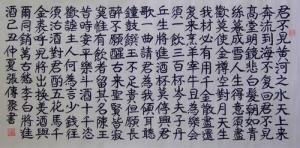 君不見黄河之水天上来
奔流到海不復回君不見
高堂明鏡悲白髮朝如青
絲暮成雪人生得意須盡
歡莫使金樽空對月天生
我材必有用千金散盡還
復来烹羊宰牛且為樂會
須一飲三百杯岑夫子丹
丘生將進酒杯莫停與君
歌一曲請君為我傾耳聽
鐘鼓饌玉不足貴但願長
醉不願醒古来聖賢皆寂
寞惟有飲者留其名陳王
昔時宴平樂斗酒十千恣
歡謔主人何為言少錢徑
須沽酒對君酌五花馬千
金裘呼兒將出換美酒與
爾同銷萬古愁李白將進
酒己丑仲夏張傳聚書